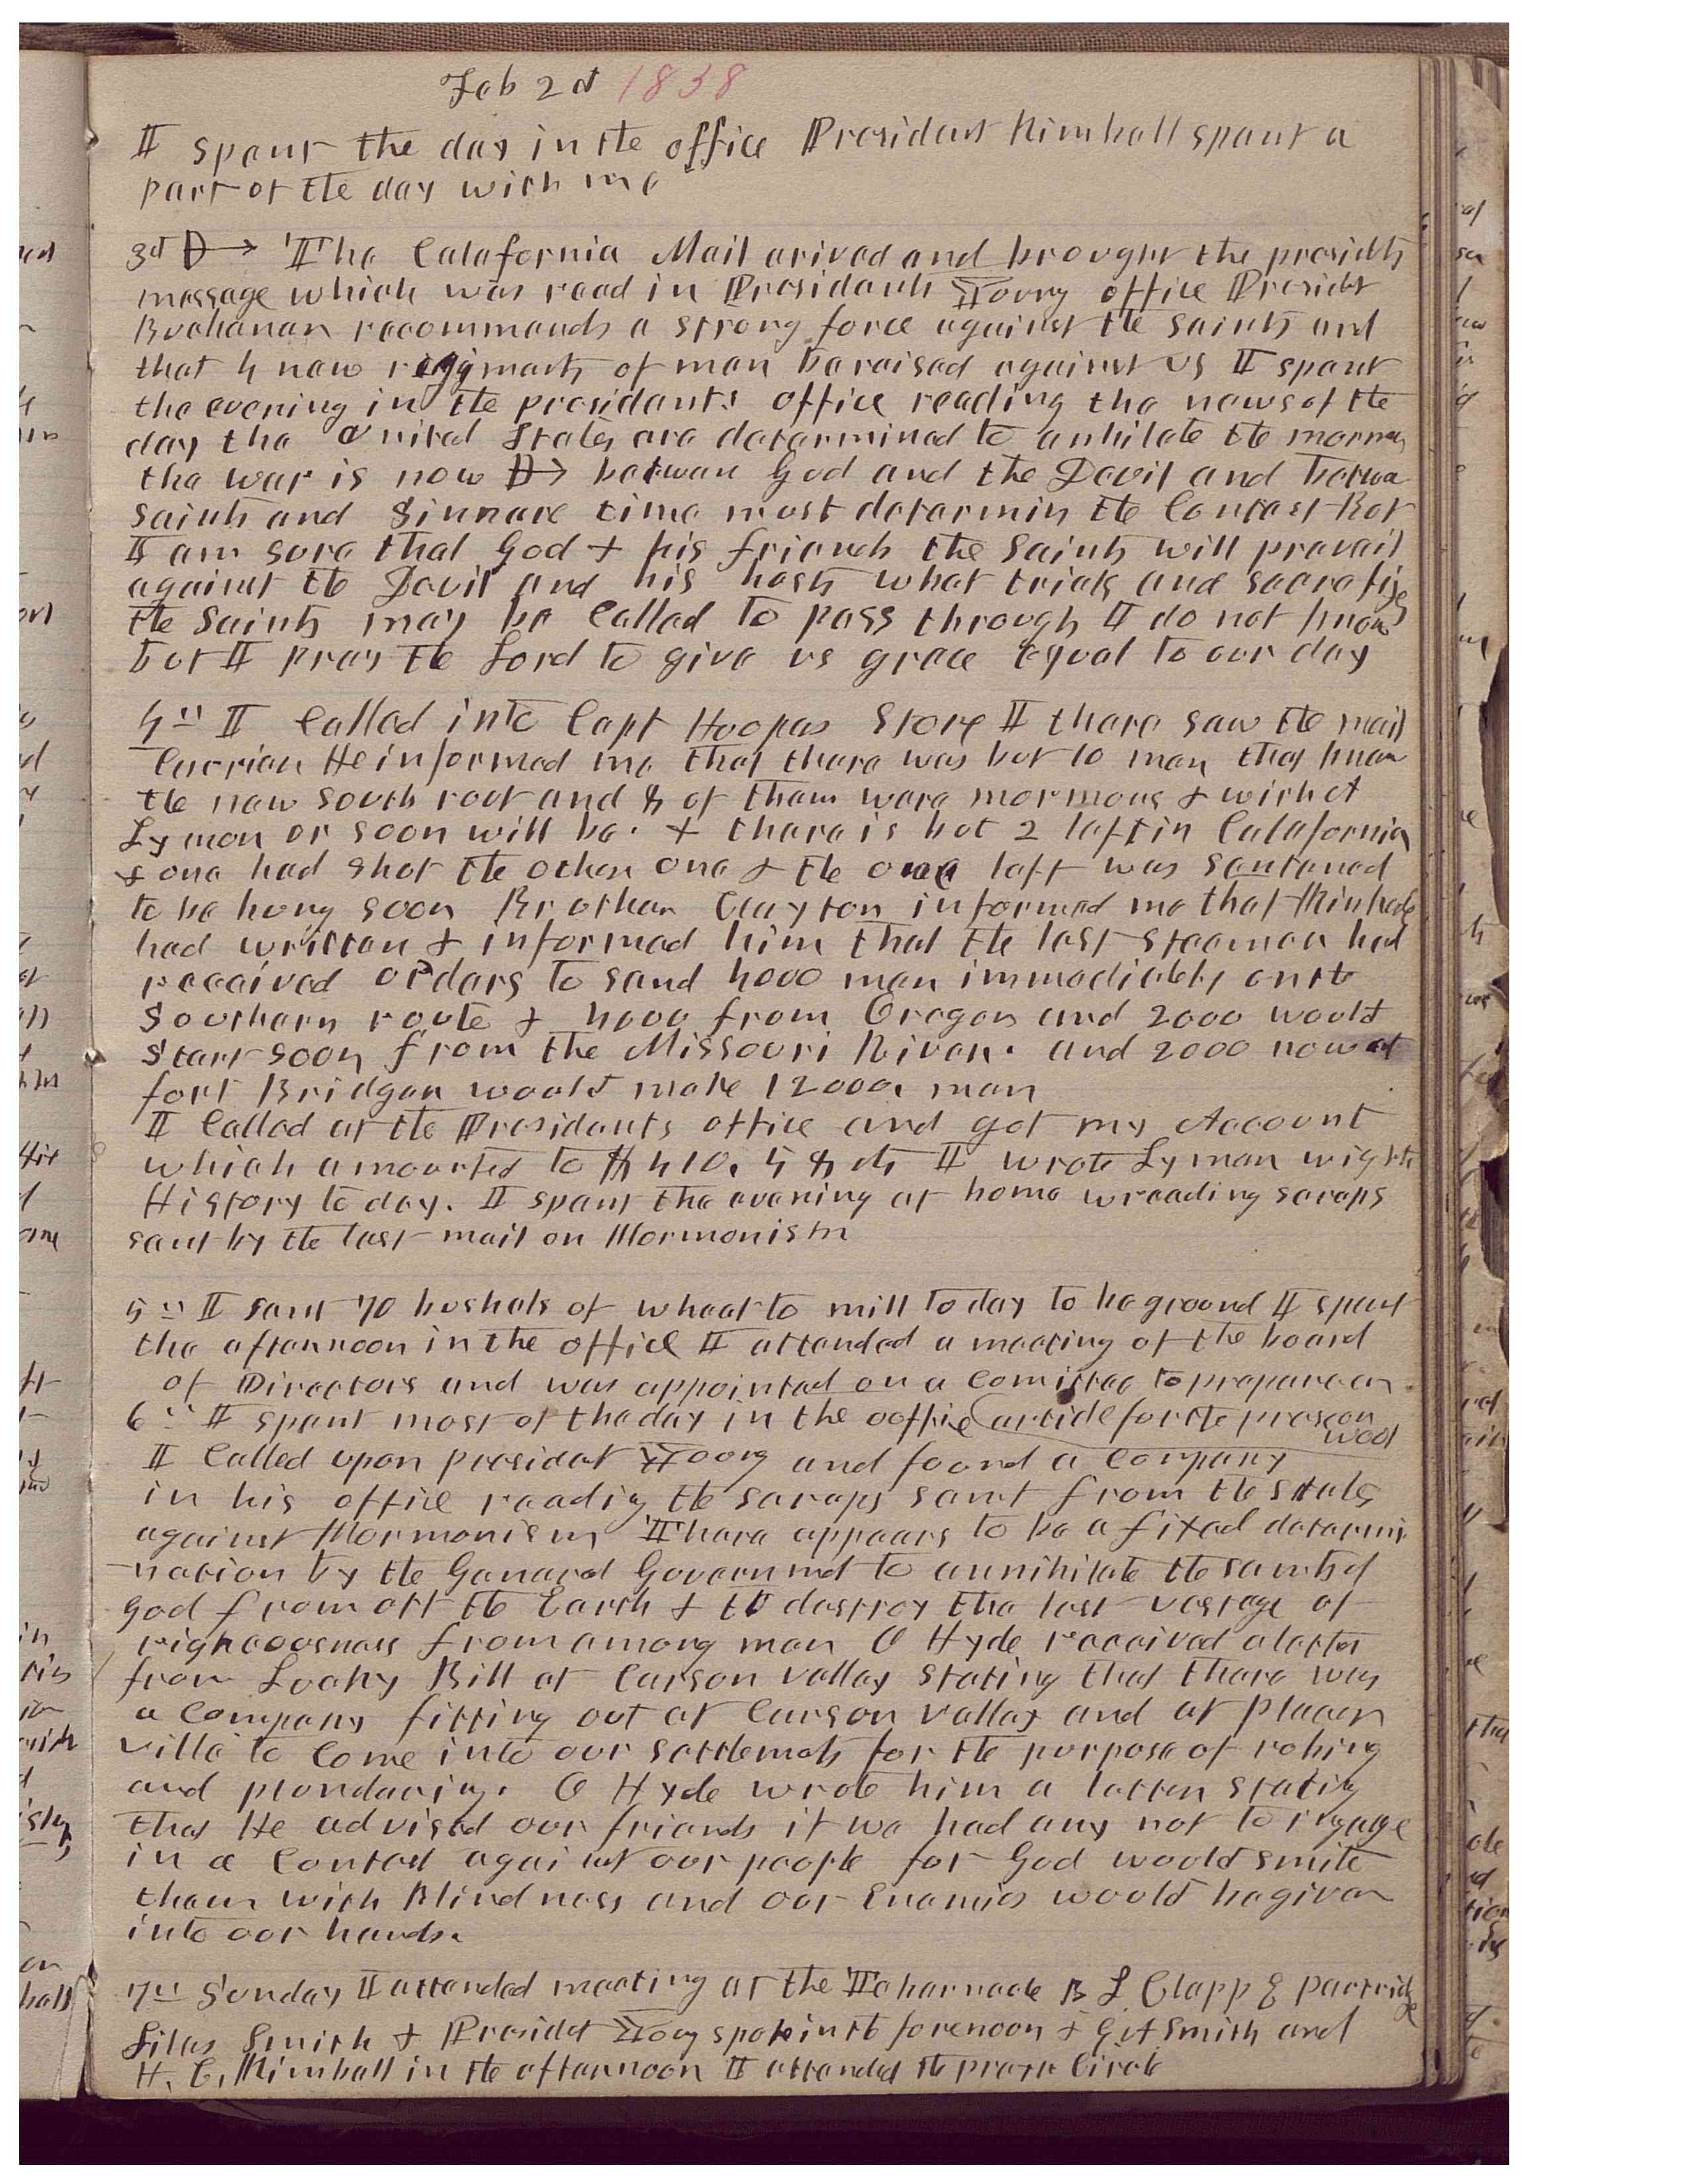 Feb 2d 1858
I spent the day in the office President Kimball spent a
part of the day with me
3d The Calafornia Mail arived and brought the presidts
message which was read in Presidents Young office Presidet
Buchanan recommends a strong force against the saints and
that 4 new regiments of men be raised against us I spent
the evening in the presidents office reading the news of the
day the United States are determined to anhilate the mormons
the war is now between God and the Devil and betwe
saints and Sinners time must determin the Contest But
I am sure that God & his friends the Saints will prevail
against the Devil and his hosts what trials and sacrafize
the Saints may be Called to pass through I do not know
but I pray the Lord to give us grace equal to our day
4th I Called into Capt Hoopers Store I there saw the mail
Carrier He informed me that there was but 10 men that knew
the new south rout and 8 of them were mormons & with A
Lyman or soon will be. & there is but 2 left in Calafornia
& one had shot the other one & the one left was sentenced
to be hung soon Brother Clayton informed me that Kinkade
had written & informed him that the last steemer had
received orders to send 4000 men immediately on the
Southern route & 4000 from Oregon and 2000 would
start soon from the Missouri River. and 2000 now at
fort Bridger would make 12000. men
I Called at the Presidents office and got my Account
which amounted to $410.58 cts I wrote Lyman wights
History to day. I spent the evening at home wreading scraps
sent by the last mail on Mormonism
5th I sent 70 bushels of wheat to mill to day to be ground I spent
the afternoon in the office I attended a meeting of the board
of Directors and was appointed on a Comittee to prepare an
article for the press on
wool
6th I spent most of the day in the ooffice
I Called upon president Young and found a Company
in his office reading the scraps sent from the States
against Mormonism There appears to be a fixed determi
-nation by the General Governmet to annihilate the saints of
God from off the Earth & to destroy the last vestage of
righteousness from among men O Hyde received a letter
from Lucky Bill at Carson valley stating that there was
a Company fitting out at Carson valley and at Placer
ville to Come into our settlemets for the purpose of robing
and plundering. O Hyde wrote him a letter stating
that He advised our friends if we had any not to ingage
in a Contest against our people for God would smite
them with Blindness and our Enemies would be given
into our hands.
7th Sunday I attended meeting at the Tabernacle B L Clapp E Partridge
Silas Smith & Presidet Young spoke in the forenoon & G. A Smith and
H. C. Kimball in the afternoon I attended the prayer Circle